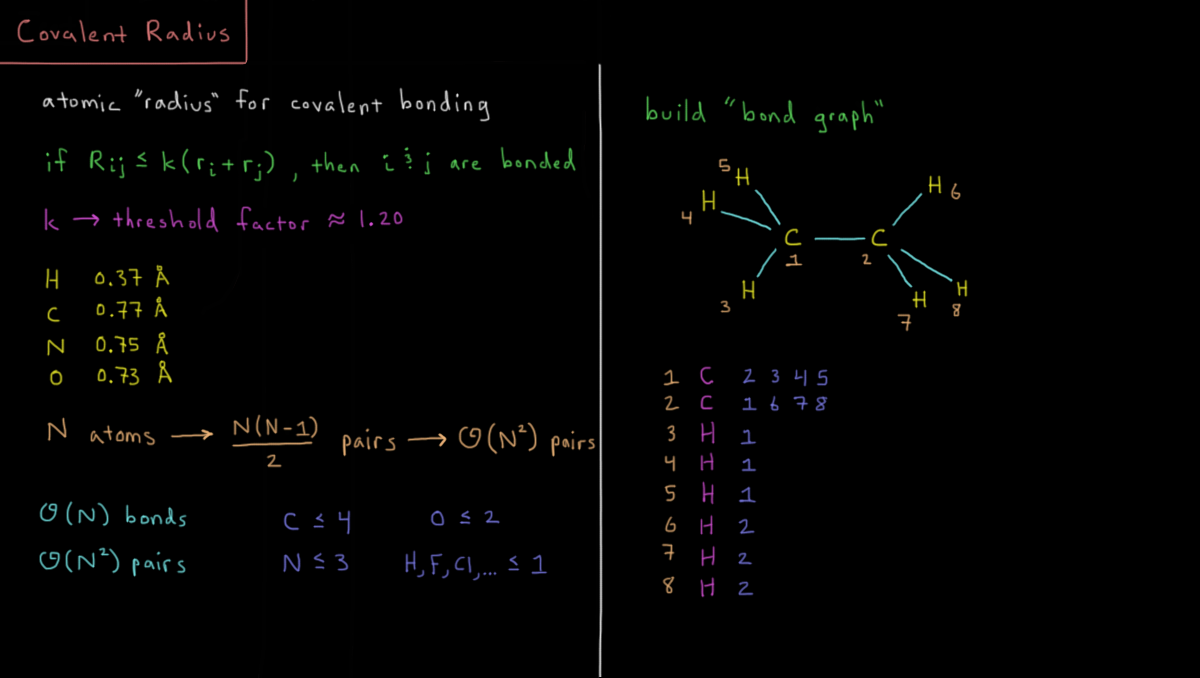 Covalent Radius
atomic "radius" for covalent bonding
if Rij ≤ k(ri + rj), then i & j are bonded
k → threshold factor ≈ 1.20
H 0.37 Å
C 0.77 Å
N 0.75 Å
O 0.73 Å
N atoms → N(N-1)/2 pairs → O(N²) pairs
O(N) bonds C ≤ 4 O ≤ 2
O(N²) pairs N ≤ 3 H, F, Cl, ... ≤ 1
build "bond graph"
5 H
H 6
4 H
C C
1 2
3 H
H 7
H 8
1 C 2 3 4 5
2 C 1 6 7 8
3 H 1
4 H 1
5 H 1
6 H 2
7 H 2
8 H 2